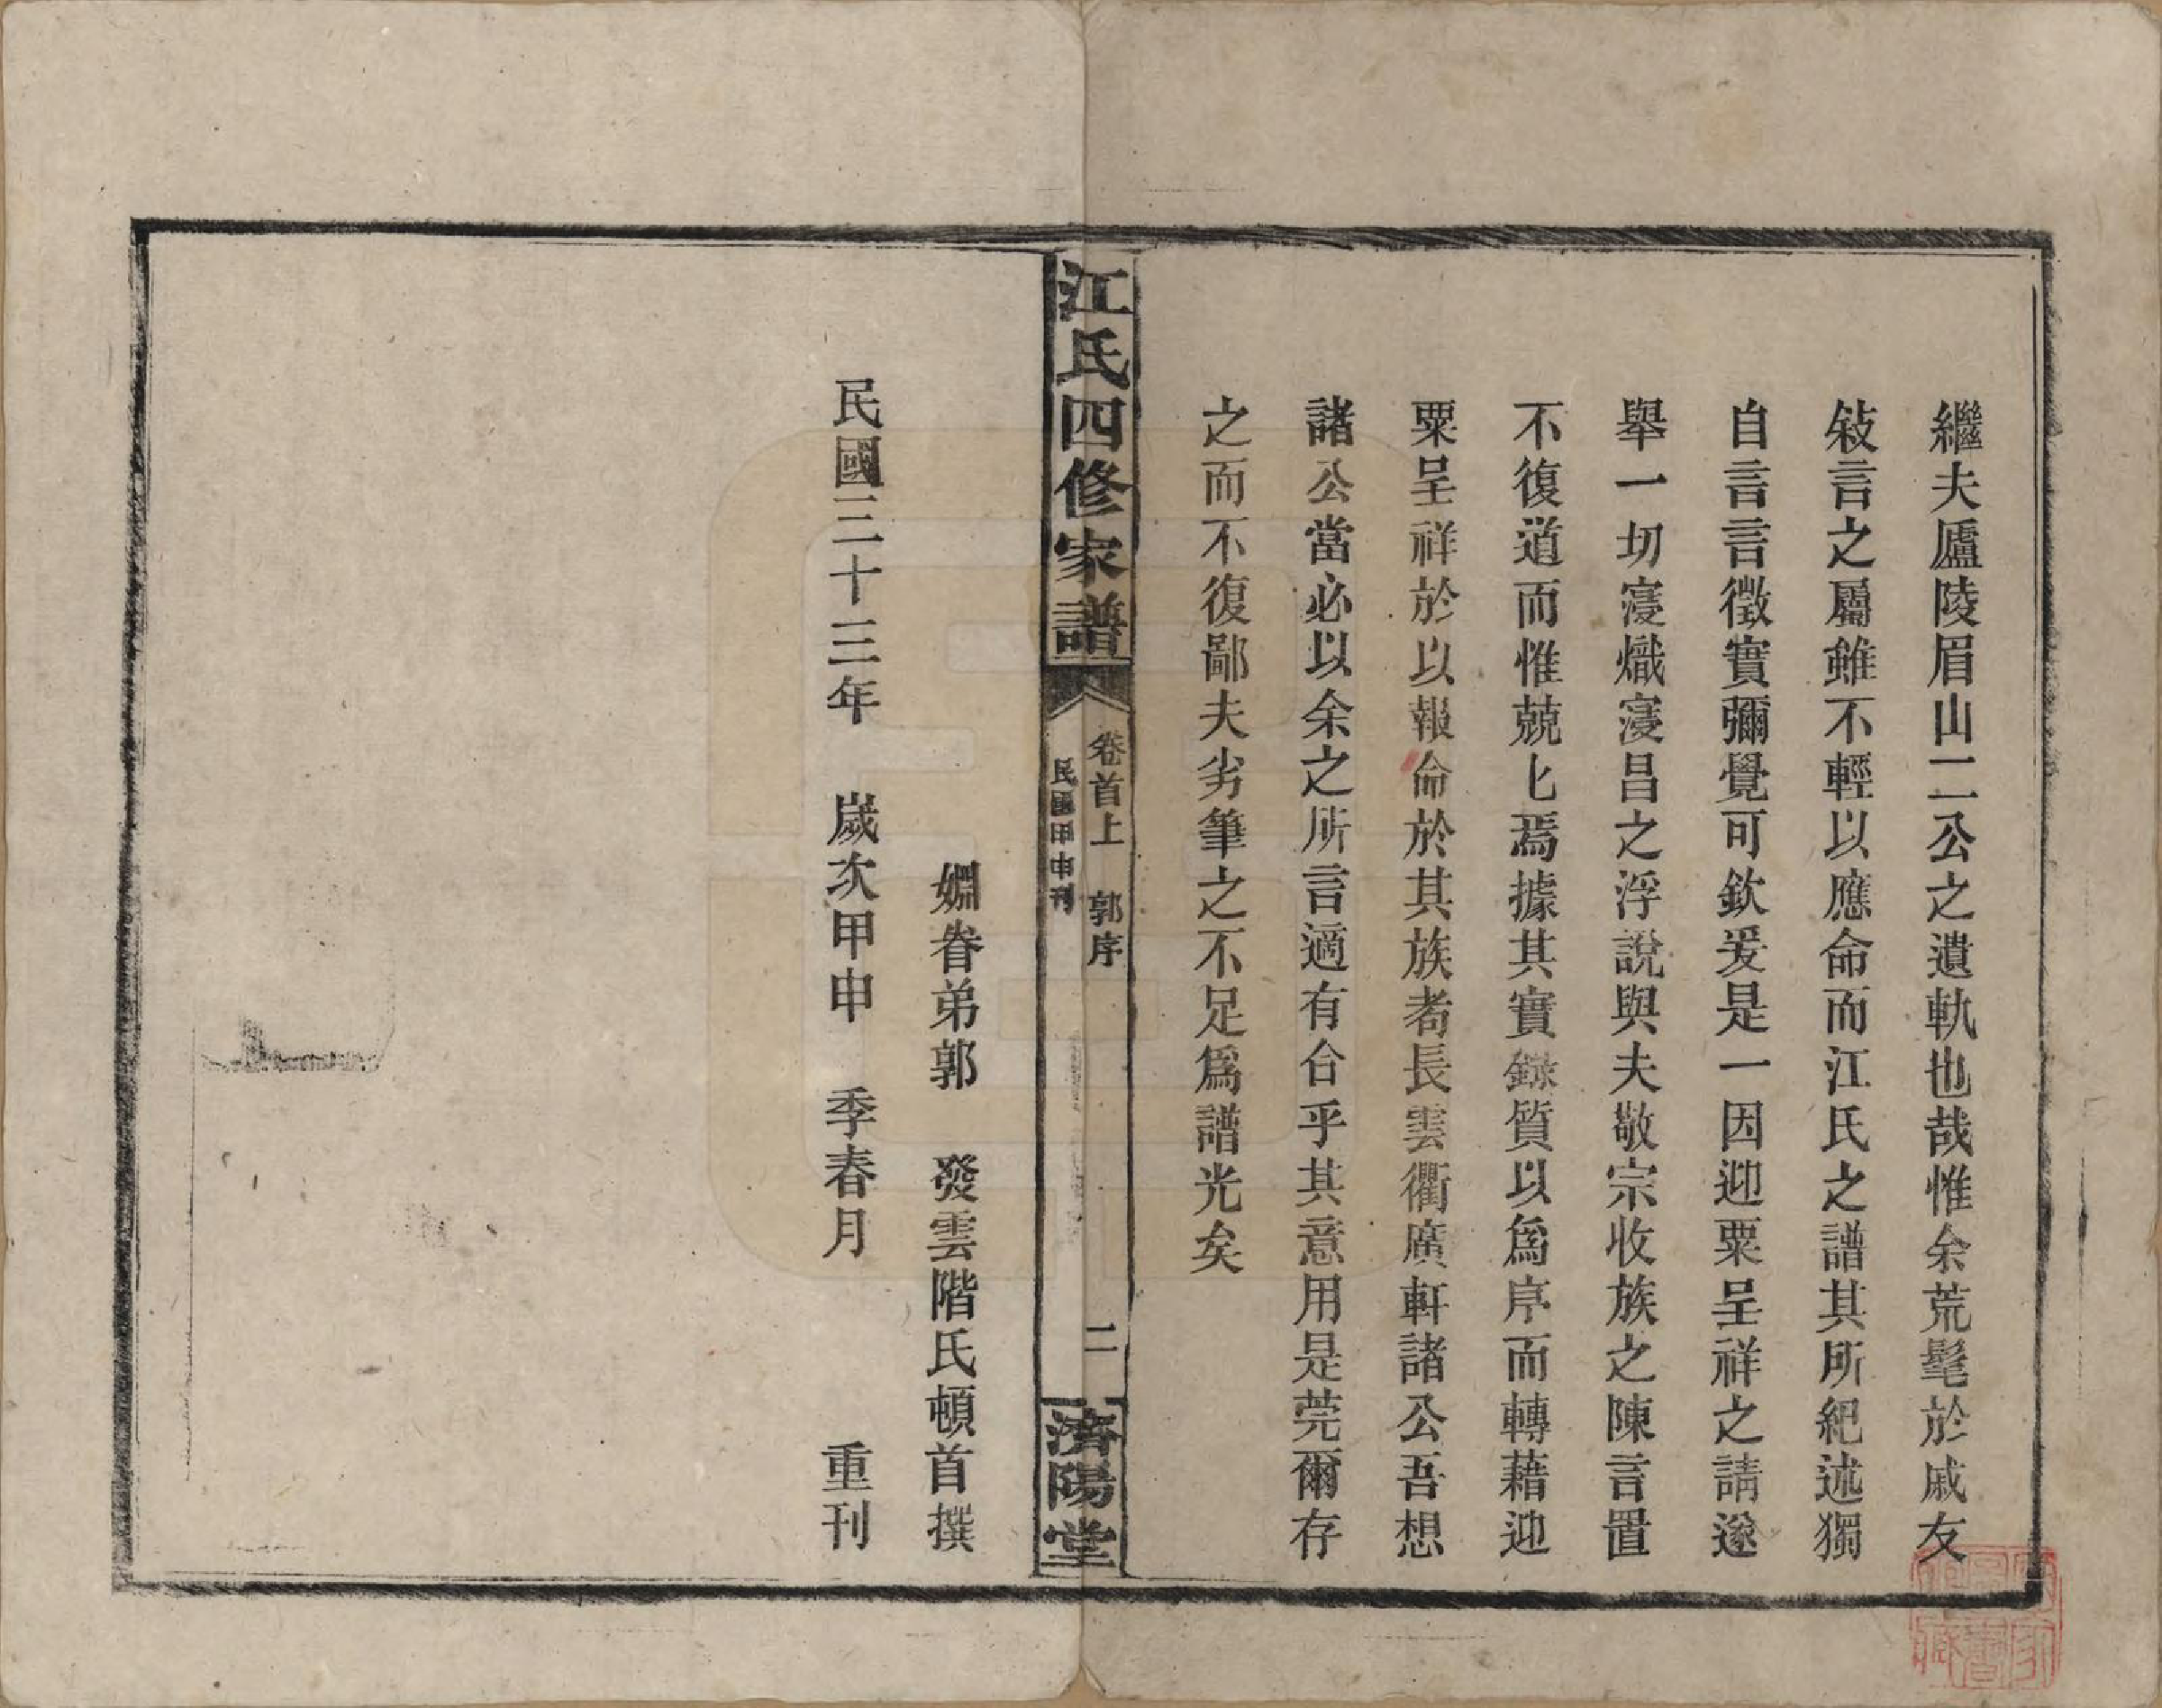 繼夫廬陵眉山二公之遺軌也哉惟余荒髦於戚友
敍言之屬雖不輕以應命而江氏之譜其所紀述獨
自言言徵實彌覺可欽爰是一因迎粟呈祥之請遂
舉一切寖熾寖昌之浮說與夫敬宗收族之陳言置
不復道而惟兢匕焉據其實錄質以爲序而轉藉迎
粟呈祥於以報命於其族耆長雲衢廣軒諸公吾想
諸公當必以余之所言適有合乎其意用是莞爾存
之而不復鄙夫劣筆之不足爲譜光矣
江氏四修家譜
卷首上 郭序
民國甲申刊
二
濟陽堂
姻眷弟郭 發雲階氏頓首撰
民國三十三年 歲次甲申 季春月 重刊